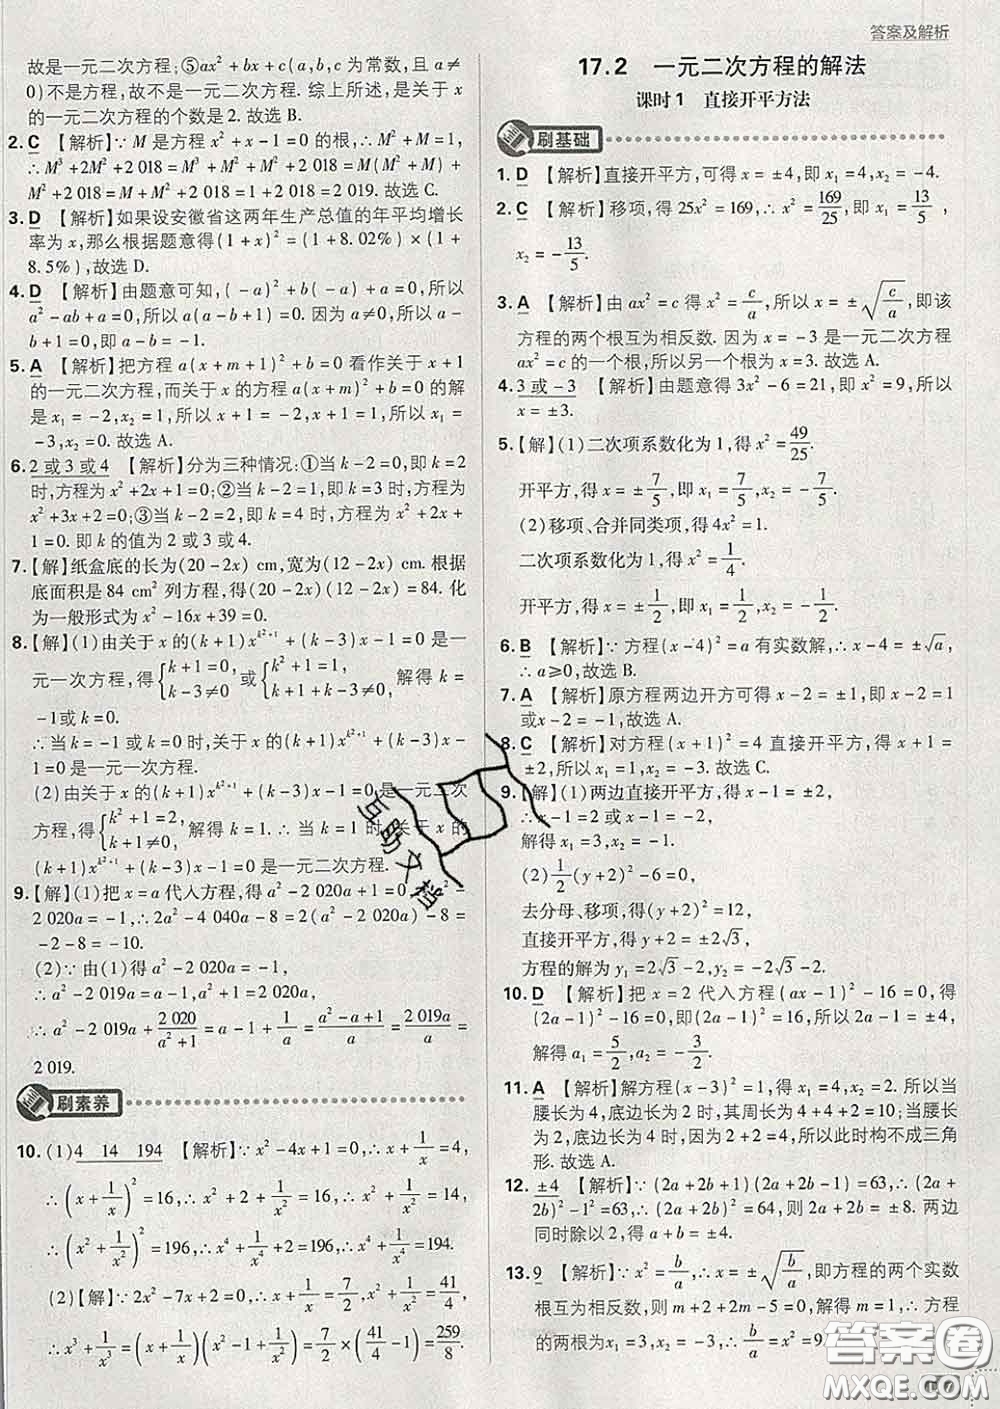 答案及解析
故是一元二次方程;⑤ax²+bx+c(a,b,c 为常数,且 a≠
0)不是方程,故不是一元二次方程. 综上所述,是关于 x
的一元二次方程的个数是 2. 故选 B.
2. C 【解析】∵ M 是方程 x²+x-1=0 的根,∴ M²+M=1,
∴ M³+2M²+2 018=M³+M²+M²+2 018=M(M²+M)+
M²+2 018=M+M²+2 018=1+2 018=2 019. 故选 C.
3. D 【解析】如果设安徽省这两年生产总值的年平均增长
率为 x,那么根据题意得(1+x)²=(1+8.02%)×(1+
8.5%),故选 D.
4. D 【解析】由题意可知,(-a)²+b(-a)+a=0,所以
a²-ab+a=0,所以 a(a-b+1)=0. 因为 a≠0,所以 a-b+
1=0,即 a-b=-1.
5. A 【解析】把方程 a(x+m+1)²+b=0 看作关于 x+1
的一元二次方程,而关于 x 的方程 a(x+m)²+b=0 的解
是 x₁=-2,x₂=1,所以 x+1=-2,x+1=1,所以 x₁=
-3,x₂=0. 故选 A.
6. 2 或 3 或 4 【解析】分为三种情况:①当 k-2=0,即 k=2
时,方程为 x²+2x+1=0;②当 k-2=1,即 k=3 时,方程为
x²+3x+2=0;③当 k-2=2,即 k=4 时,方程为 x²+4x+
1=0. 即 k 的值为 2 或 3 或 4.
7.【解】纸盒底的长为(20-2x) cm,宽为(12-2x) cm. 根据
底面积是 84 cm² 列方程,得(20-2x)(12-2x)=84. 化
为一般形式为 x²-16x+39=0.
8.【解】(1)由关于 x 的(k+1)x^{k²+1}+(k-3)x-1=0 是一
元一次方程,得{k+1=0, k-3≠0 或{k²+1=1, (k+1)+(k-3)≠0, 解得 k=
-1或 k=0.
∴ 当 k=-1 或 k=0 时,关于 x 的(k+1)x^{k²+1}+(k-3)x-
1=0 是一元一次方程.
(2)由关于 x 的(k+1)x^{k²+1}+(k-3)x-1=0 是一元二次
方程,得{k²+1=2, k+1≠0, 解得 k=1. ∴ 当 k=1 时,关于 x 的
(k+1)x^{k²+1}+(k-3)x-1=0 是一元二次方程.
9.【解】(1)把 x=a 代入方程,得 a²-2 020a+1=0,∴ a²-
2 020a=-1,∴ 2a²-4 040a-8=2(a²-2 020a)-8=
-2-8=-10.
(2)∵ 由(1)得 a²-2 020a=-1,
∴ a²-2 019a=a-1,a²+1=2 020a,
∴ a²-2 019a+2 020/(a²+1)=a-1+1/a=(a²-a+1)/a=2 019a/a=
2 019.
刷素养
10. (1)4 14 194 【解析】∵ x²-4x+1=0,∴ x+1/x=4,
∴ (x+1/x)²=16,∴ x²+2+1/x²=16,∴ x²+1/x²=14,
∴ (x²+1/x²)²=196,∴ x⁴+1/x⁴+2=196,∴ x⁴+1/x⁴=194.
(2)【解】∵ 2x²-7x+2=0,∴ x+1/x=7/2,∴ x²+1/x²=41/4,
∴ x³+1/x³=(x+1/x)(x²+1/x²-1)=7/2×(41/4-1)=259/8.
17.2 一元二次方程的解法
课时 1 直接开平方法
刷基础
1. D 【解析】直接开平方,可得 x=±4,即 x₁=4,x₂=-4.
2. C 【解析】移项,得 25x²=169,∴ x²=169/25,即 x₁=13/5,
x₂=-13/5.
3. A 【解析】由 ax²=c 得 x²=c/a,所以 x=±√(c/a),即该
方程的两个根互为相反数. 因为 x=-3 是一元二次方程
ax²=c 的一个根,所以另一个根为 x=3. 故选 A.
4. 3 或-3 【解析】由题意得 3x²-6=21,即 x²=9,所以
x=±3.
5.【解】(1)二次项系数化为 1,得 x²=49/25.
开平方,得 x=±7/5,即 x₁=7/5,x₂=-7/5.
(2)移项、合并同类项,得 4x²=1.
二次项系数化为 1,得 x²=1/4.
开平方,得 x=±1/2,即 x₁=1/2,x₂=-1/2.
6. B 【解析】∵ 方程(x-4)²=a 有实数解,∴ x-4=±√a,
∴ a≥0,故选 B.
7. A 【解析】原方程两边开方可得 x-2=±1,即 x-2=1
或x-2=-1,故选 A.
8. C 【解析】对方程(x+1)²=4 直接开平方,得 x+1=
±2,所以 x₁=1,x₂=-3. 故选 C.
9.【解】(1)两边直接开平方,得 x-1=±2,
∴ x-1=2 或 x-1=-2,
解得 x₁=3,x₂=-1.
(2)1/2(y+2)²-6=0,
去分母、移项,得(y+2)²=12,
直接开平方,得 y+2=±2√3,
方程的解为 y₁=2√3-2,y₂=-2√3-2.
10. D 【解析】把 x=2 代入方程(ax-1)²-16=0,得
(2a-1)²-16=0,即(2a-1)²=16,所以 2a-1=±4,
解得 a₁=5/2,a₂=-3/2. 故选 D.
11. A 【解析】解方程(x-3)²=1,得 x₁=2,x₂=4. 所以当
腰长为 4,底边长为 2 时,其周长为 4+4+2=10;当腰长
为 2,底边长为 4 时,因为 2+2=4,所以此时构不成三角
形. 故选 A.
12. ±4 【解析】∵ (2a+2b+1)(2a+2b-1)=63,∴ (2a+
2b)²-1²=63,∴ (2a+2b)²=64,则 2a+2b=±8. 两边
同时除以 2,得 a+b=±4.
13. 9 【解析】∵ x²=b/a,∴ x=±√(b/a),即方程的两个实数
根互为相反数,则 m+2+2m-5=0,解得 m=1,∴ 方程
的两根为x₁=3,x₂=-3,∴ b/a=x²=9
互助文档
答案圈
MXQE.COM